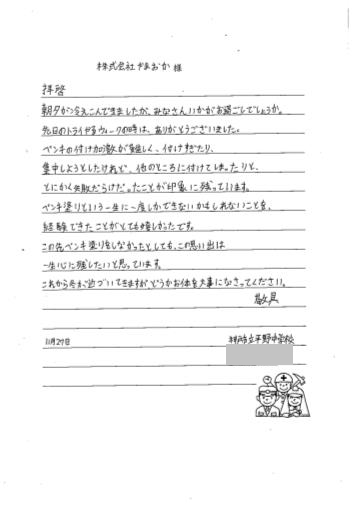 株式会社やまおか 様
拝啓
朝夕が冷えこんできましたが、みなさんいかがお過ごしでしょうか。
先日のトライやるウィークの時は、ありがとうございました。
ペンキの付け加減が難しく、付けすぎたり、
集中しようとしたけれど、他のところに付けてしまったりと、
とにかく失敗だらけだったことが印象に残っています。
ペンキ塗りという一生に一度しかできないかもしれないことを、
経験できたことがとても嬉しかったです。
この先ペンキ塗りをしなかったとしても、この思い出は
一生心に残したいと思っています。
これから冬が近づいてきますが、どうかお体を大事になさってください。
敬具
11月27日
市立平野中学校